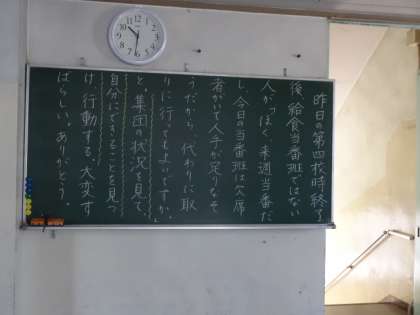 昨日の第四校時終了
後、給食当番班ではない
人が「ぼく、来週当番だ
し、今日の当番班は欠席
者がいて人手が足りなそ
うだから、代わりに取
りに行ってもよいですか。」
と。集団の状況を見て、
自分にできることを見つ
け、行動する。大変す
ばらしい。ありがとう。